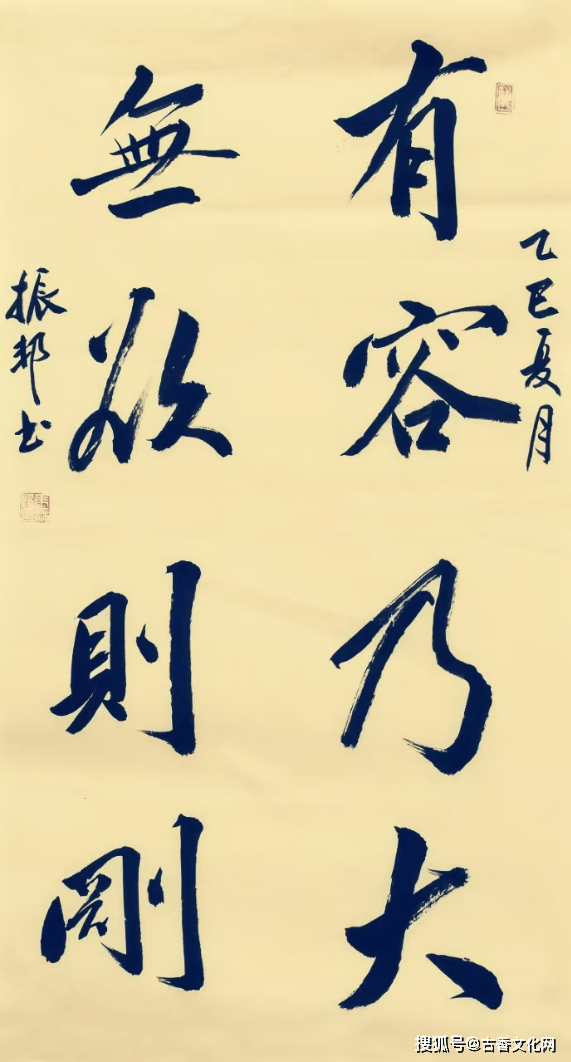 乙巳夏月
有容乃大
無欲則剛
振邦书
搜狐号@古香文化网